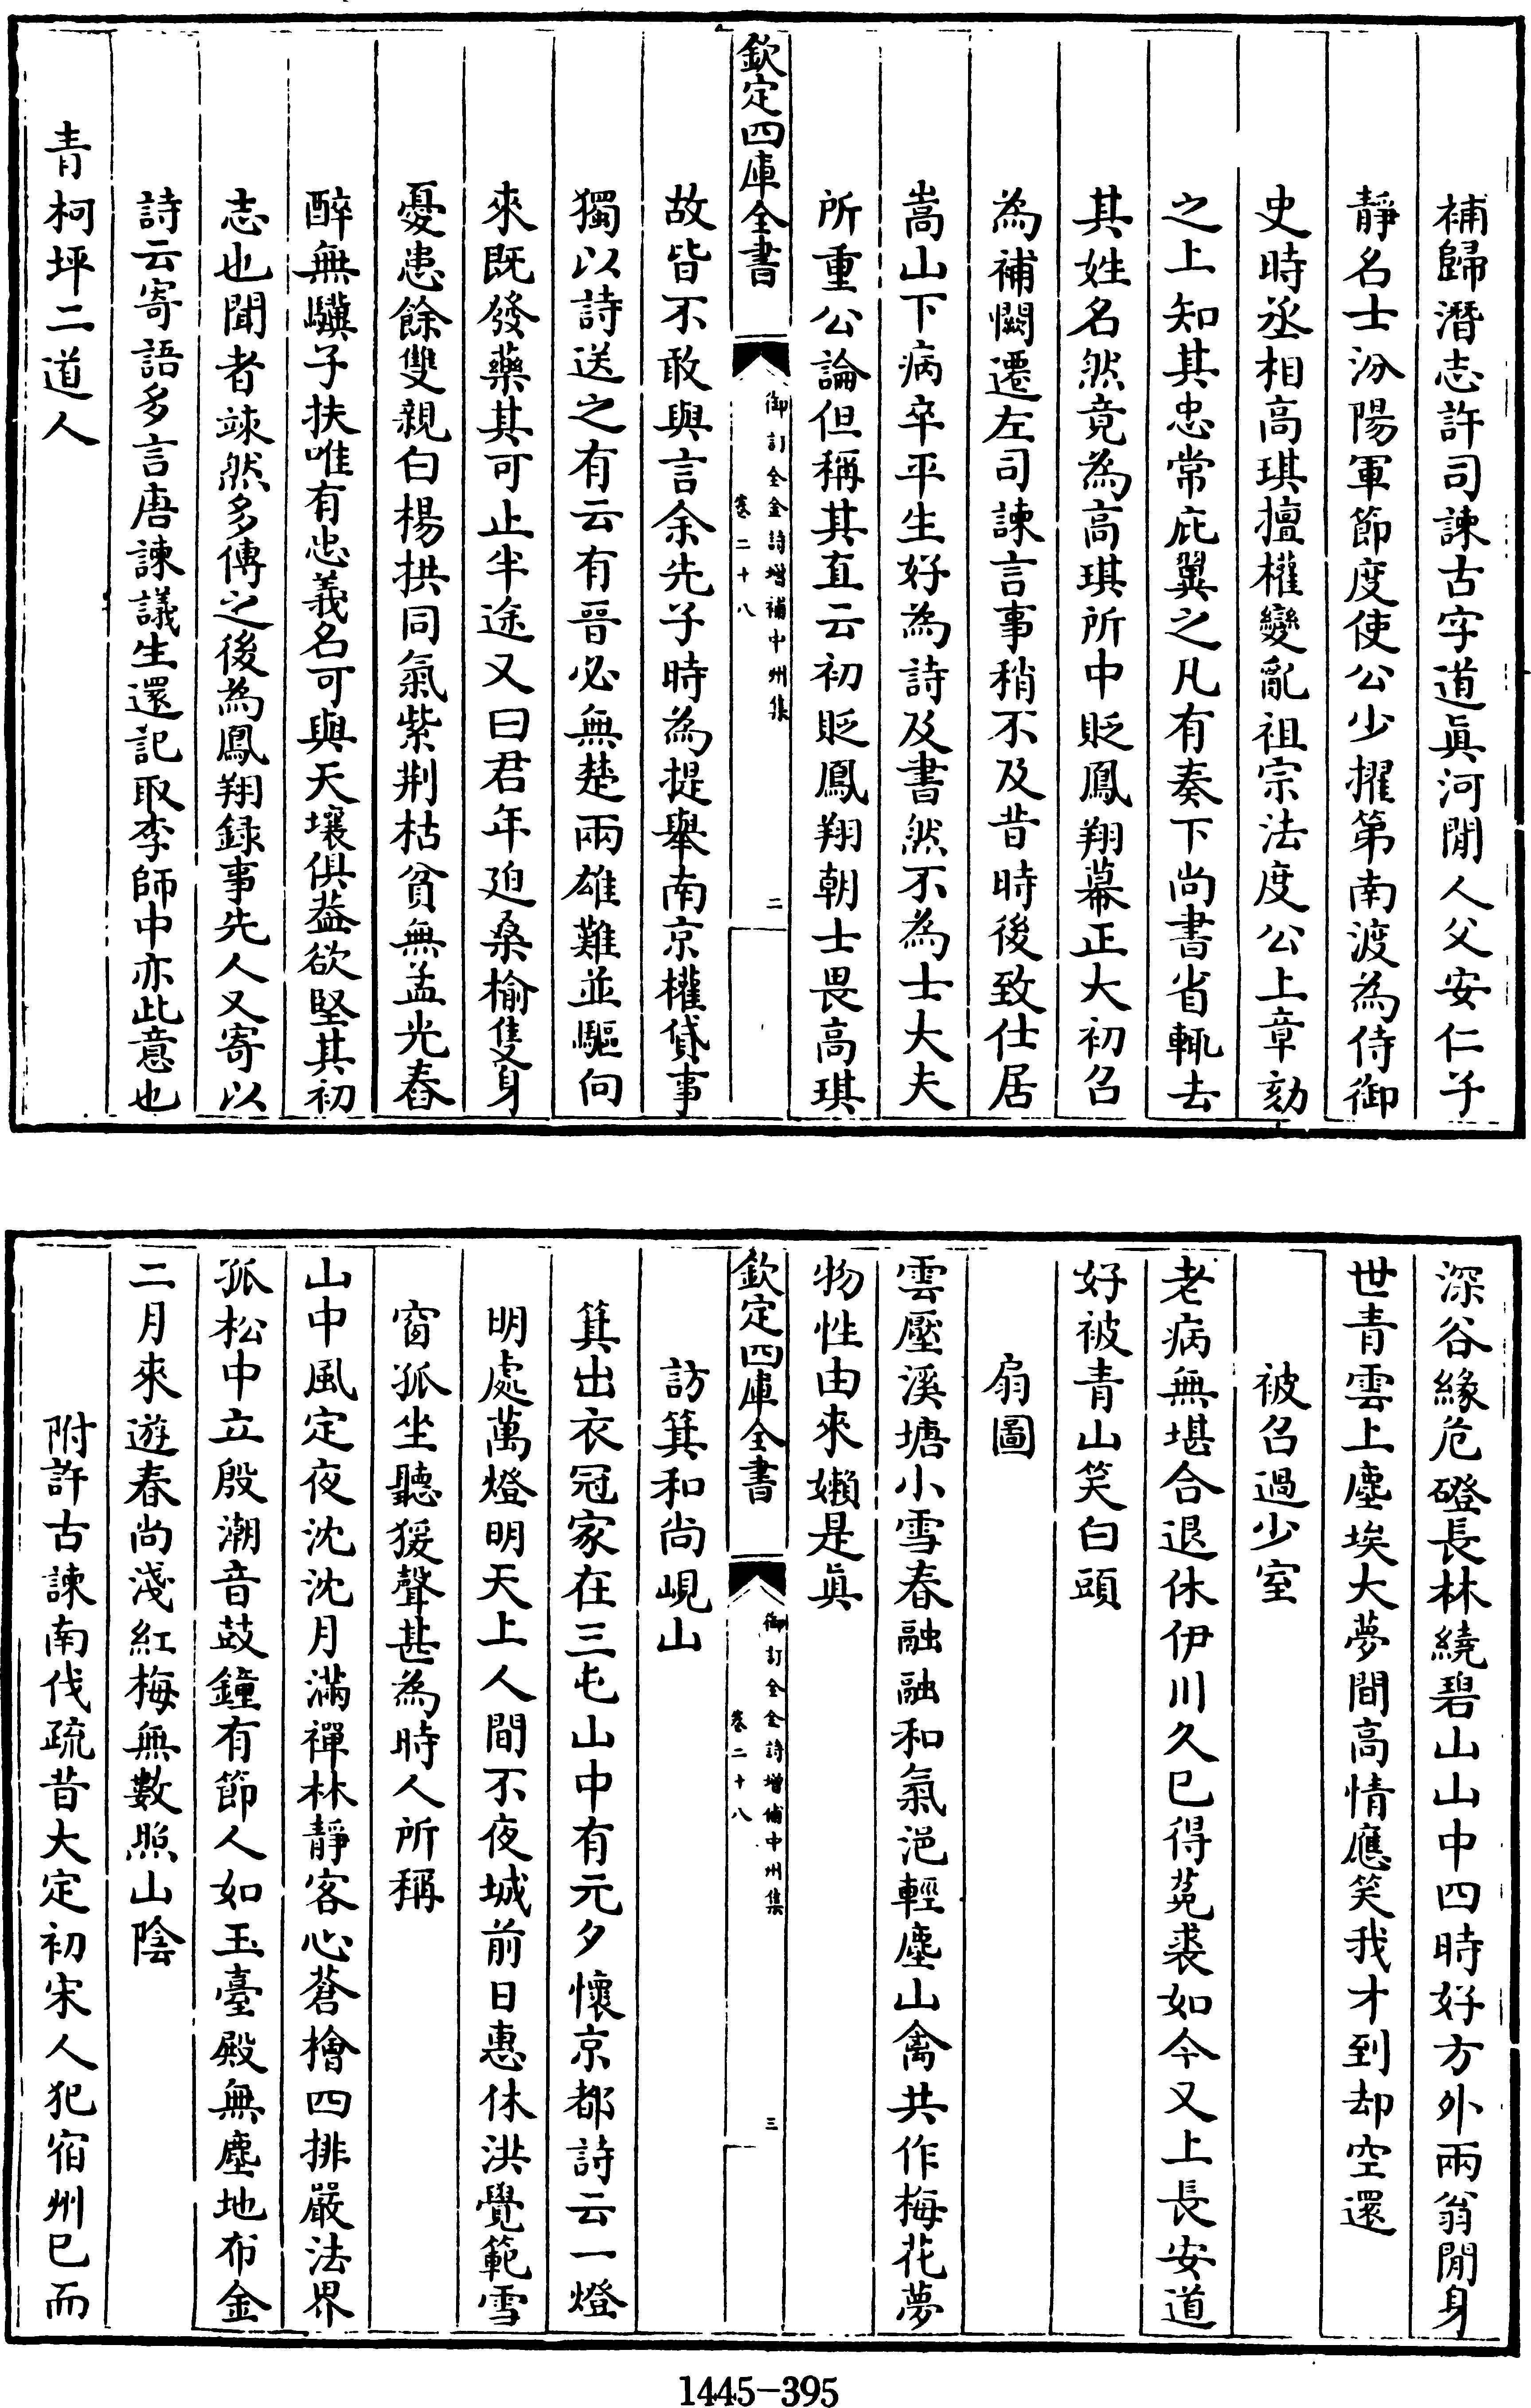 補歸潛志許司諫古字道眞河間人父安仁子
靜名士汾陽軍節度使公少擢第南渡為侍御
史時丞相高琪擅權變亂祖宗法度公上章劾
之上知其忠常庇翼之凡有奏下尚書省輒去
其姓名然竟為高琪所中貶鳳翔幕正大初召
為補闕遷左司諫言事稍不及昔時後致仕居
嵩山下病卒平生好為詩及書然不為士大夫
所重公論但稱其直云初貶鳳翔朝士畏高琪
欽定四庫全書
御訂全金詩增補中州集
卷二十八
二
故皆不敢與言余先子時為提舉南京權貸事
獨以詩送之有云有晉必無楚兩雄難並驅向
來既發藥其可止半途又曰君年迫桑榆隻身
憂患餘雙親白楊拱同氣紫荆枯貧無孟光舂
醉無驥子扶唯有忠義名可與天壤俱葢欲堅其初
志也聞者竦然多傳之後為鳳翔録事先人又寄以
詩云寄語多言唐諫議生還記取李師中亦此意也
青柯坪二道人
深谷緣危磴長林繞碧山山中四時好方外兩翁閒身
世青雲上塵埃大夢間高情應笑我才到却空還
被召過少室
老病無堪合退休伊川久已得菟裘如今又上長安道
好被青山笑白頭
扇圖
雲壓溪塘小雪春融融和氣浥輕塵山禽共作梅花夢
物性由來嬾是眞
欽定四庫全書
御訂全金詩增補中州集
卷二十八
三
訪箕和尚峴山
箕出衣冠家在三屯山中有元夕懷京都詩云一燈
明處萬燈明天上人間不夜城前日惠休洪覺範雪
窗孤坐聽猨聲甚為時人所稱
山中風定夜沈沈月滿禪林靜客心蒼檜四排嚴法界
孤松中立殷潮音鼓鐘有節人如玉臺殿無塵地布金
二月來遊春尚淺紅梅無數照山陰
附許古諫南伐疏昔大定初宋人犯宿州已而
1445-395